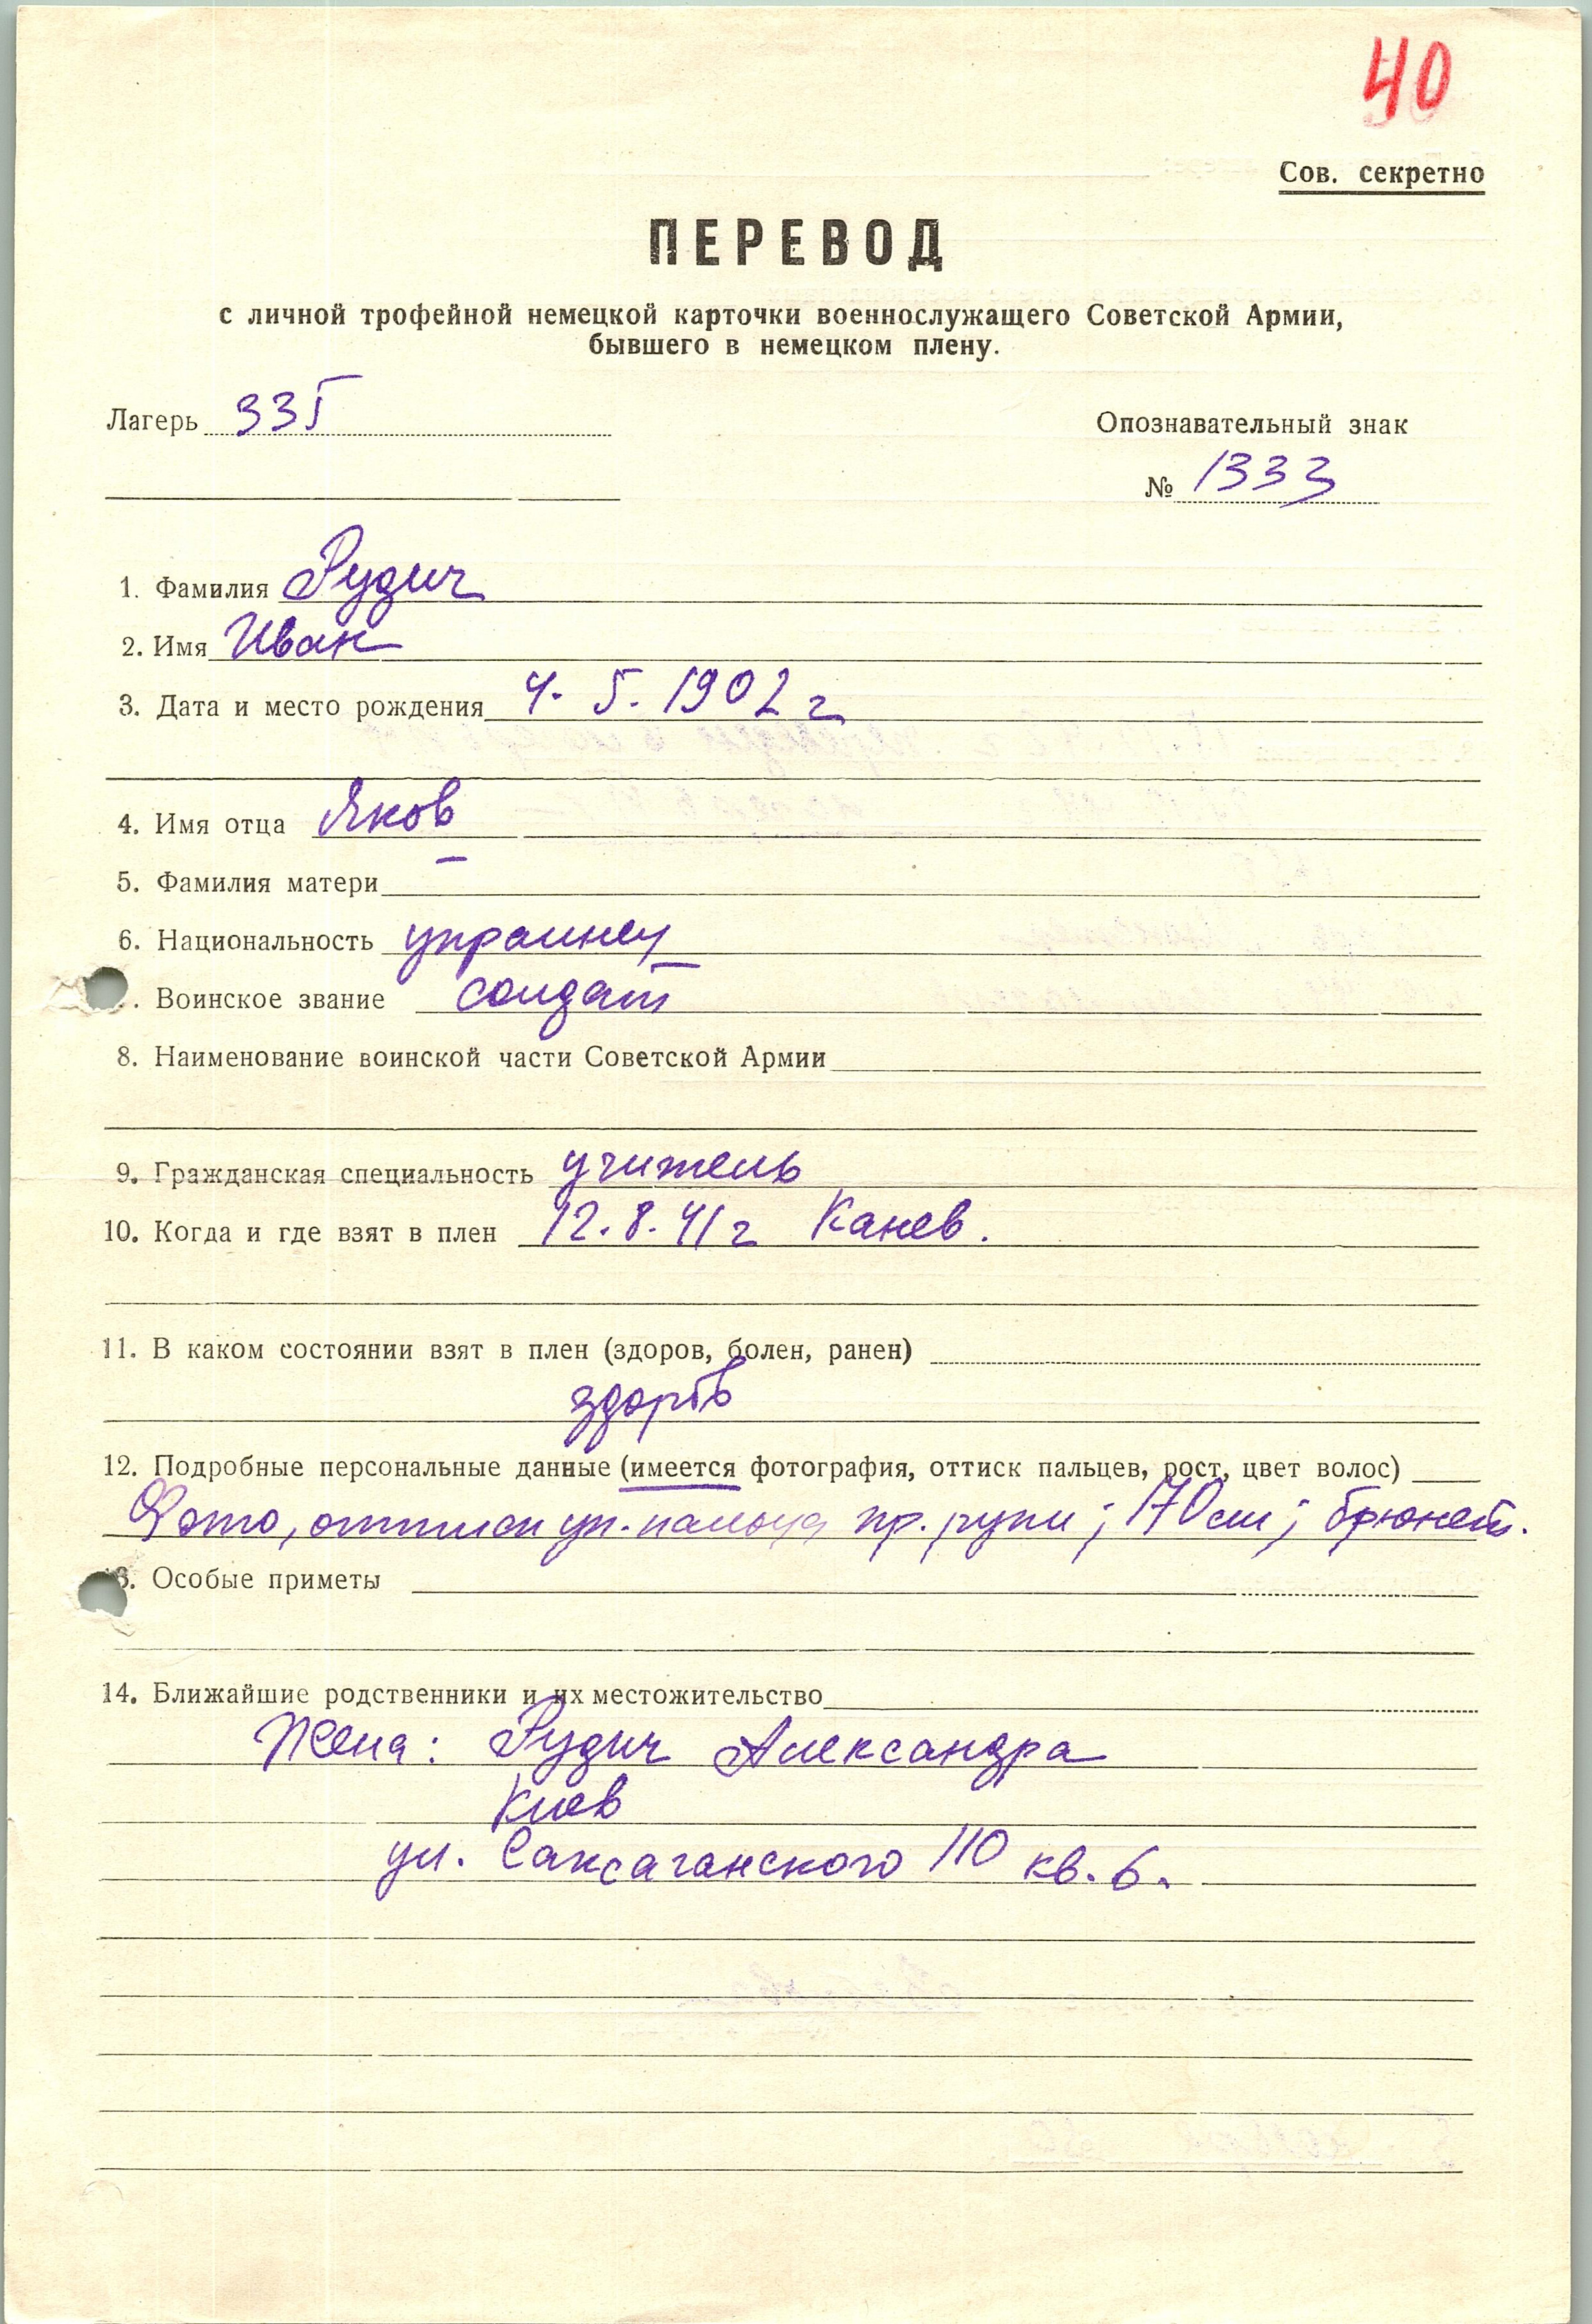 40
Сов. секретно
ПЕРЕВОД
с личной трофейной немецкой карточки военнослужащего Советской Армии,
бывшего в немецком плену.
Лагерь 335
Опознавательный знак
№ 1333
1. Фамилия Рудич
2. Имя Иван
3. Дата и место рождения 4. 5. 1902 г
4. Имя отца Яков
5. Фамилия матери –
6. Национальность украинец
. Воинское звание солдат
8. Наименование воинской части Советской Армии
9. Гражданская специальность учитель
10. Когда и где взят в плен 12. 8. 41 г Канев.
11. В каком состоянии взят в плен (здоров, болен, ранен)
здоров
12. Подробные персональные данные (имеется фотография, оттиск пальцев, рост, цвет волос)
Фото, оттиск ук. пальца пр. руки; 170 см; брюнет.
13. Особые приметы
14. Ближайшие родственники и их местожительство
Жена: Рудич Александра
Киев
ул. Саксаганского 110 кв. 6.